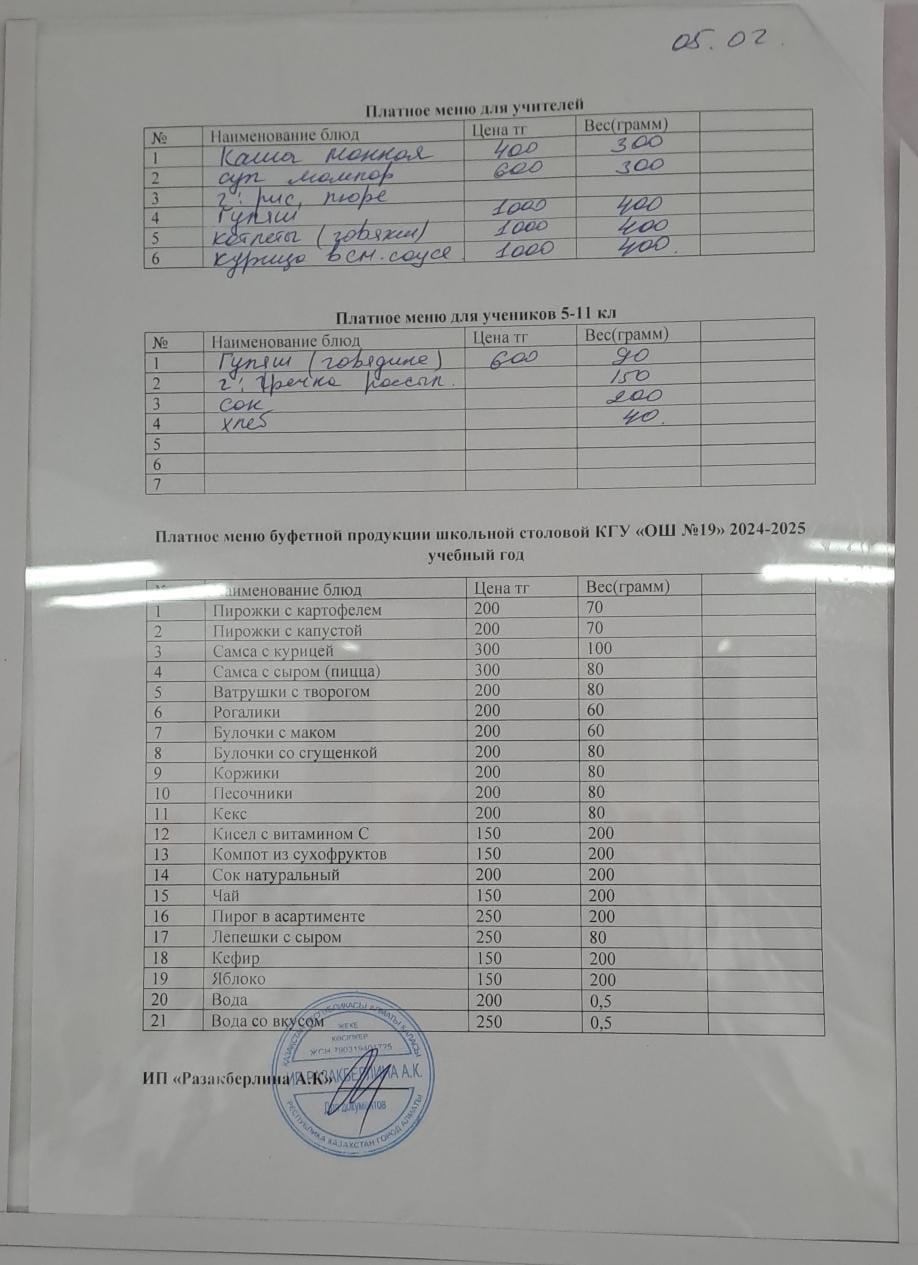 05.02
Платное меню для учителей
№ Наименование блюд Цена тг Вес(грамм)
1 Каша манная 400 300
2 суп мампар 600 300
3 г: рис, пюре
4 Гуляш 1000 400
5 котлеты (говяжии) 1000 400
6 курица в см. соусе 1000 400.
Платное меню для учеников 5-11 кл
№ Наименование блюд Цена тг Вес(грамм)
1 Гуляш (говядине) 600 90
2 г: Гречка рассып. 150
3 сок 200
4 хлеб 40.
5
6
7
Платное меню буфетной продукции школьной столовой КГУ «ОШ №19» 2024-2025
учебный год
аименование блюд Цена тг Вес(грамм)
1 Пирожки с картофелем 200 70
2 Пирожки с капустой 200 70
3 Самса с курицей 300 100
4 Самса с сыром (пицца) 300 80
5 Ватрушки с творогом 200 80
6 Рогалики 200 60
7 Булочки с маком 200 60
8 Булочки со сгущенкой 200 80
9 Коржики 200 80
10 Песочники 200 80
11 Кекс 200 80
12 Кисел с витамином С 150 200
13 Компот из сухофруктов 150 200
14 Сок натуральный 200 200
15 Чай 150 200
16 Пирог в асартименте 250 200
17 Лепешки с сыром 250 80
18 Кефир 150 200
19 Яблоко 150 200
20 Вода 200 0,5
21 Вода со вкусом 250 0,5
ҚАЗАҚСТАН РЕСПУБЛИКАСЫ АЛМАТЫ ҚАЛАСЫ
ЖЕКЕ
КӘСІПКЕР
ЖСН
ИП «Разакберлина А.К»
ИП РАЗАКБЕРЛИНА А.К.
Для документов
РЕСПУБЛИКА КАЗАХСТАН ГОРОД АЛМАТЫ